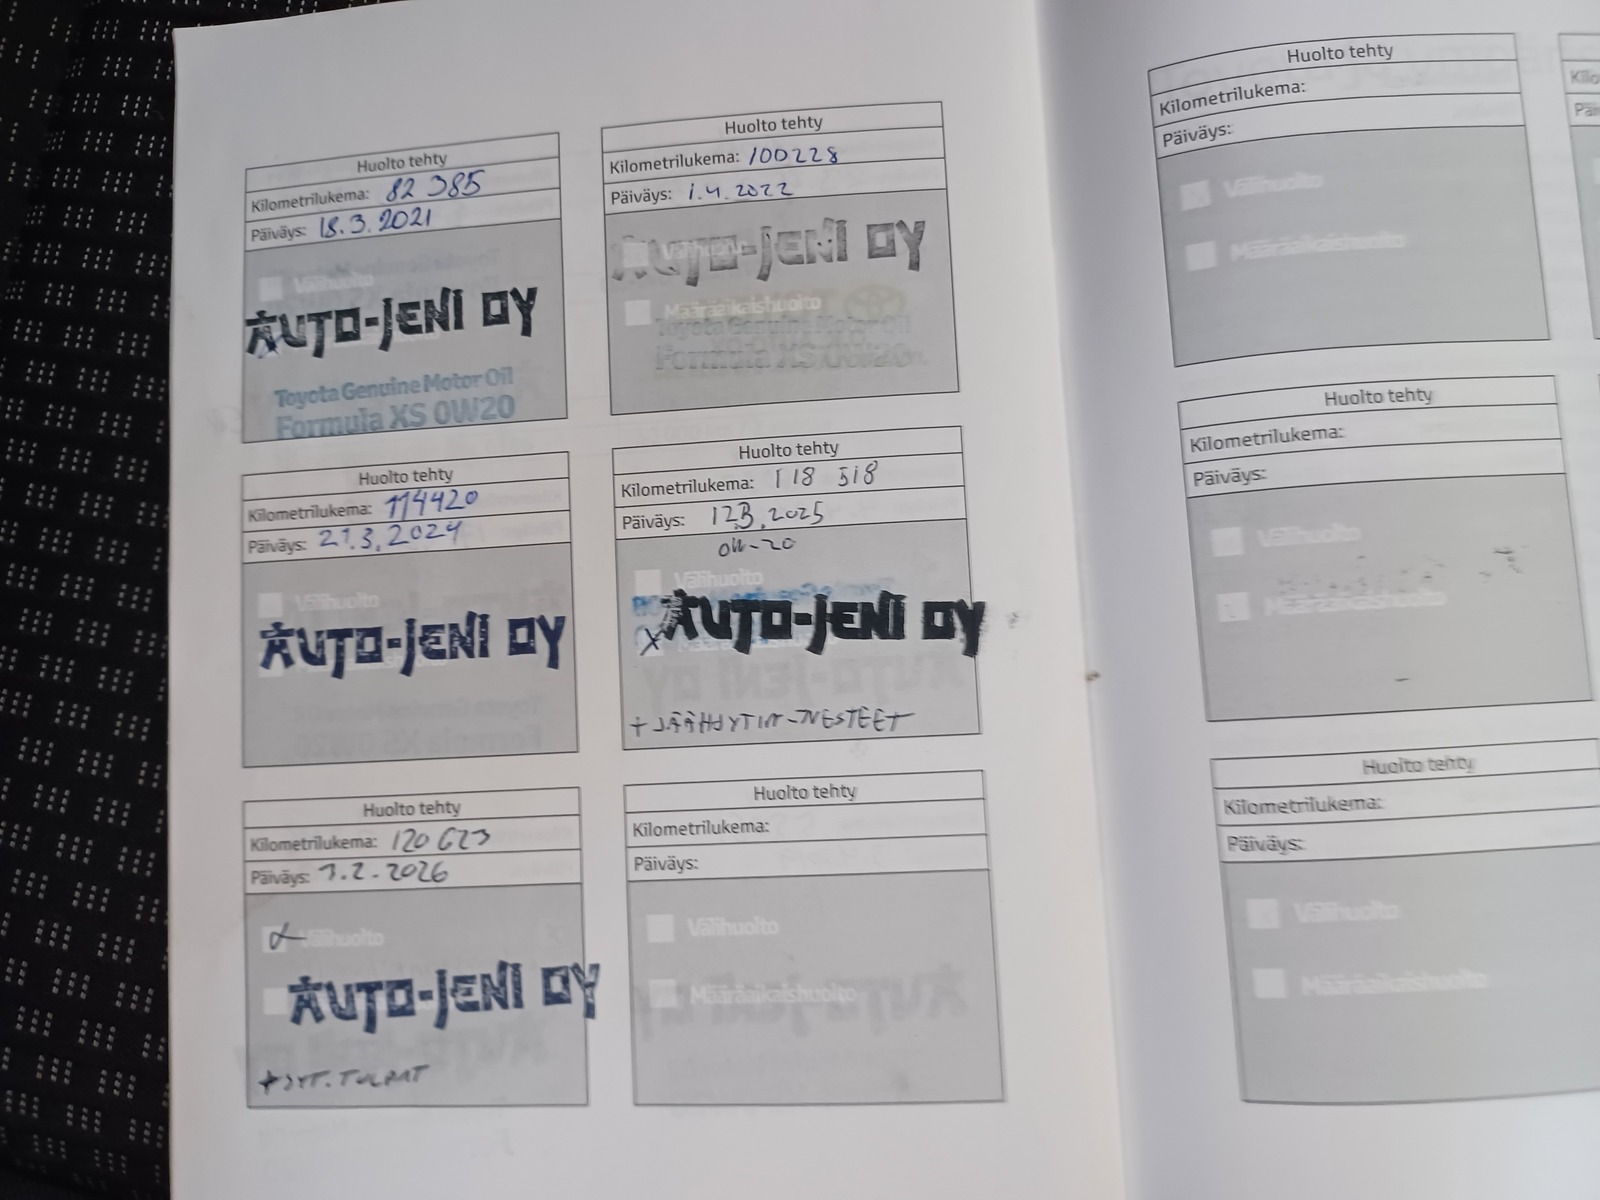 Huolto tehty
Kilometrilukema: 82 385
Päiväys: 18.3.2021
Välihuolto
AUTO-JENI OY
Toyota Genuine Motor Oil
Formula XS 0W20
Huolto tehty
Kilometrilukema: 100228
Päiväys: 1.4.2022
Välihuolto
AUTO-JENI OY
Määräaikaishuolto
Toyota Genuine Motor Oil
Formula XS 0W20
Huolto tehty
Kilometrilukema: 114420
Päiväys: 21.3.2024
Välihuolto
AUTO-JENI OY
Huolto tehty
Kilometrilukema: 118 518
Päiväys: 12.3.2025
0W-20
Välihuolto
X AUTO-JENI OY
+ JÄÄHDYTIN-NESTEET
Huolto tehty
Kilometrilukema: 120 623
Päiväys: 3.2.2026
Välihuolto
AUTO-JENI OY
+ SYT.TULPAT
Huolto tehty
Kilometrilukema:
Päiväys:
Välihuolto
Määräaikaishuolto
Huolto tehty
Kilometrilukema:
Päiväys:
Välihuolto
Määräaikaishuolto
Huolto tehty
Kilometrilukema:
Päiväys:
Välihuolto
Määräaikaishuolto
Huolto tehty
Kilometrilukema:
Päiväys:
Välihuolto
Määräaikaishuolto